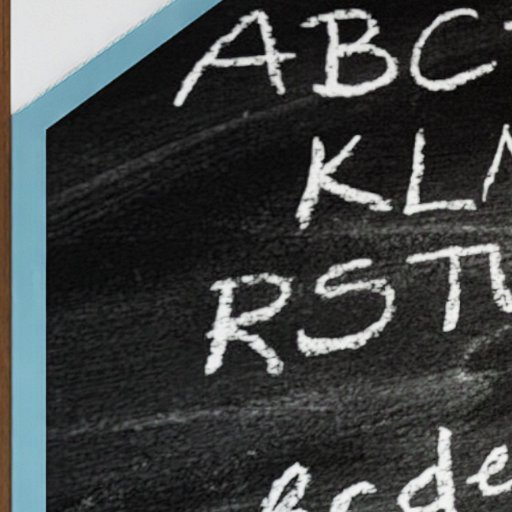 ABC
KL
RSTU
bcde